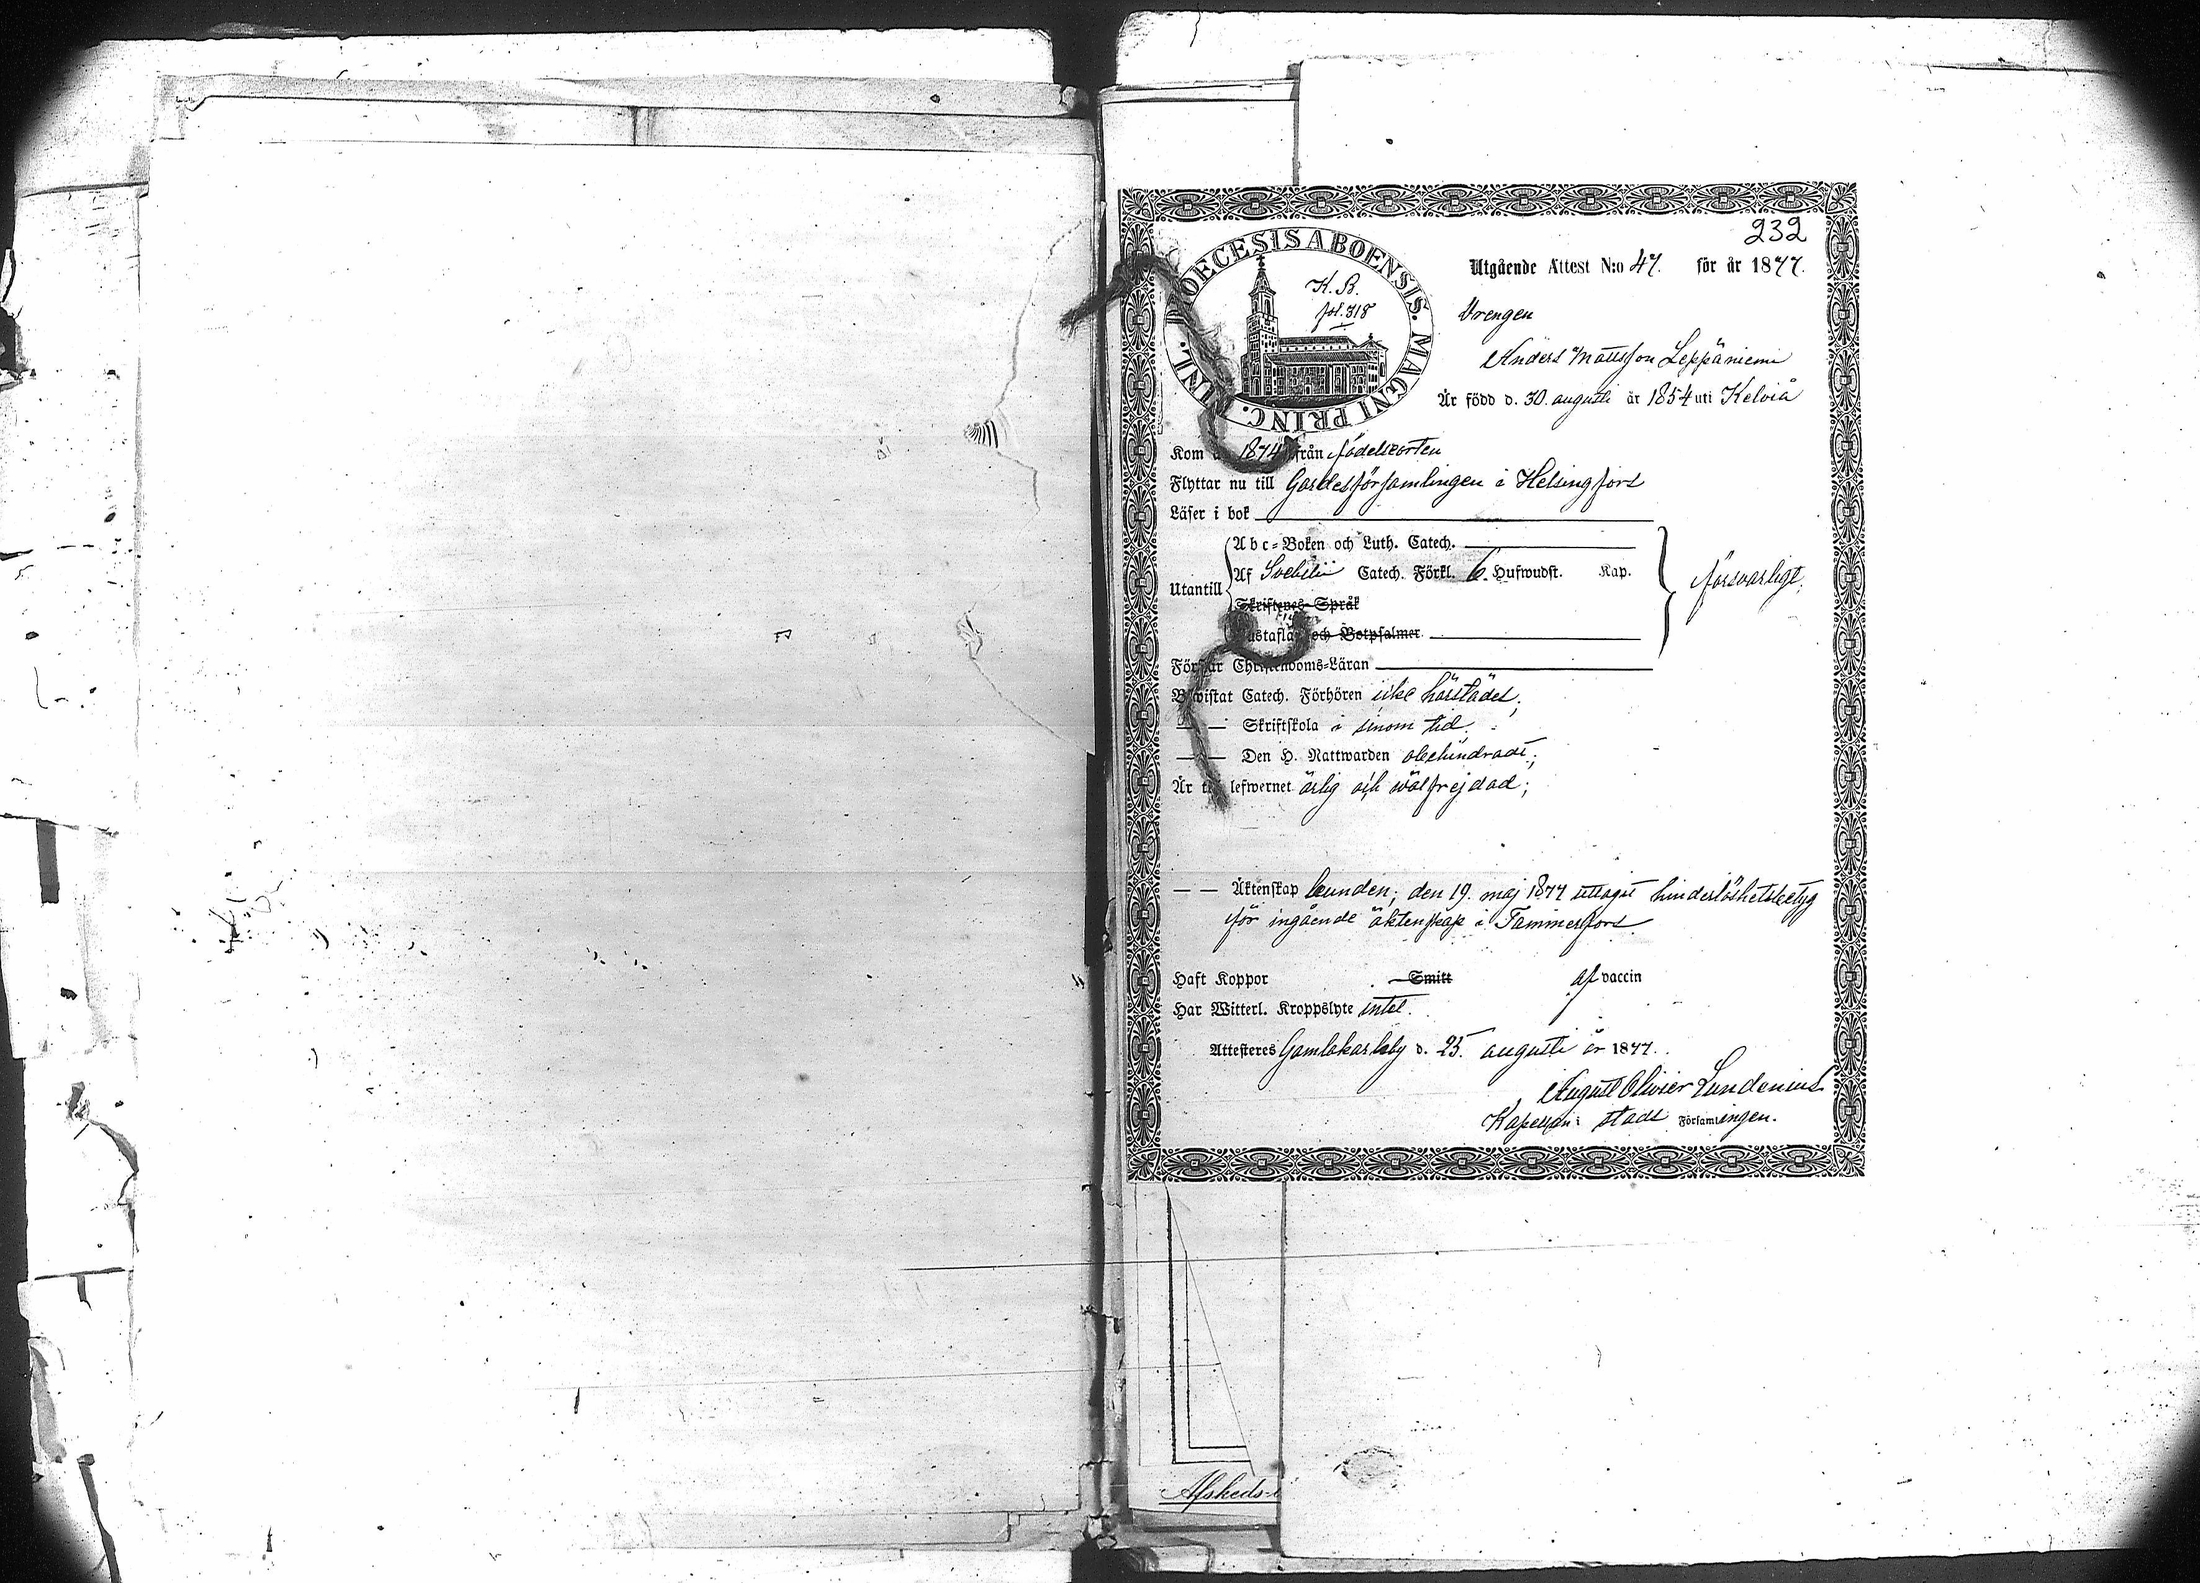 232
DIOECESIS ABOENSIS. MAGNI PRINC. FINL.
K. B.
fol. 318
Utgående Attest N:o 47. för år 1877.
Drengen
Anders Mattsson Leppäniemi
Är född d. 30. augusti år 1854 uti Kelviå
Kom 1874 från födelseorten
Flyttar nu till Gardesförsamlingen i Helsingfors
Läser i bok
Abc-Boken och Luth. Catech.
Utantill
Af Svebilii Catech. Förkl. 6. Hufwudst. Kap.
försvarligt.
Skriftenes-Språk
Hustaflan och Botpsalmer
Förstår Christendoms-Läran
Bewistat Catech. Förhören icke härstädes;
— — Skriftskola i sinom tid.
— — Den H. Nattwarden obehindradt;
Är till lefwernet ärlig och wälfrejdad;
— — Äktenskap bunden; den 19. maj 1877 uttagit hinderlöshetsbetyg
för ingående äktenskap i Tammerfors
Haft Koppor Smitt af vaccin
Har Witterl. Kroppslyte intet.
Attesteres Gamlakarleby d. 25. augusti år 1877.
August Olivier Lundenius
Kapellan i stads Församlingen.
Afskeds-